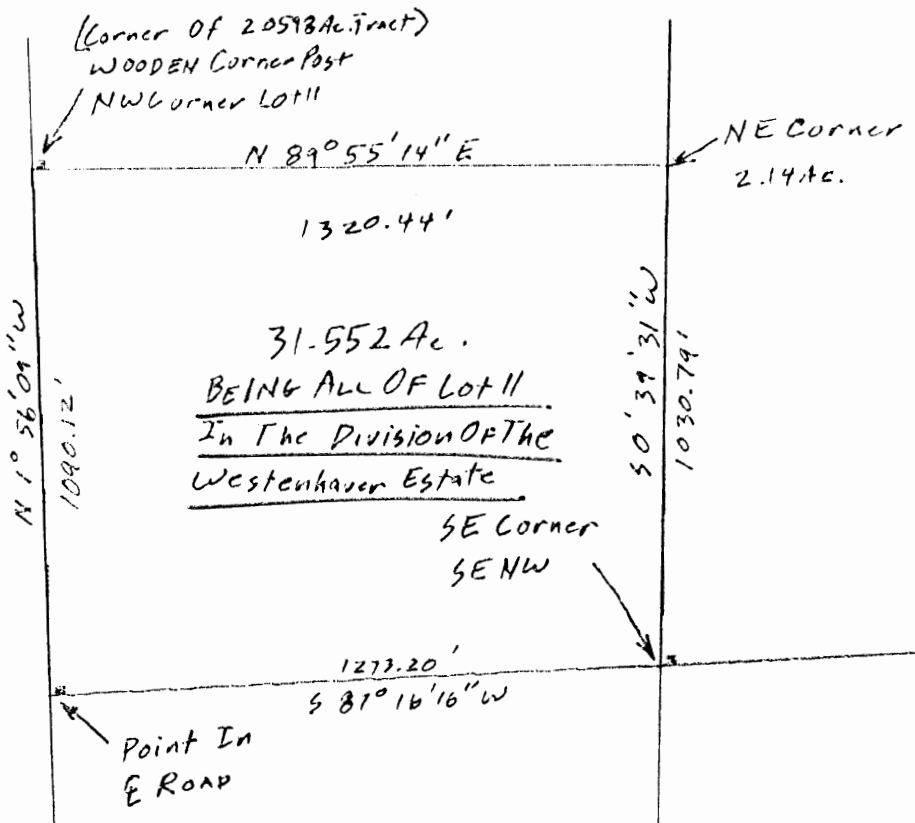 (Corner Of 20593Ac.Tract)
WOODEN Corner Post
NW Corner Lot 11
N 89° 55' 14" E
NE Corner
2.14 Ac.
1320.44'
N 1° 56' 09" W
1090.12'
31.552 Ac.
BEING ALL OF Lot 11
In The Division Of The
Westenhaver Estate
S 0° 39' 31" W
1030.79'
SE Corner
SE NW
1273.20'
S 87° 16' 16" W
Point In
℄ ROAD